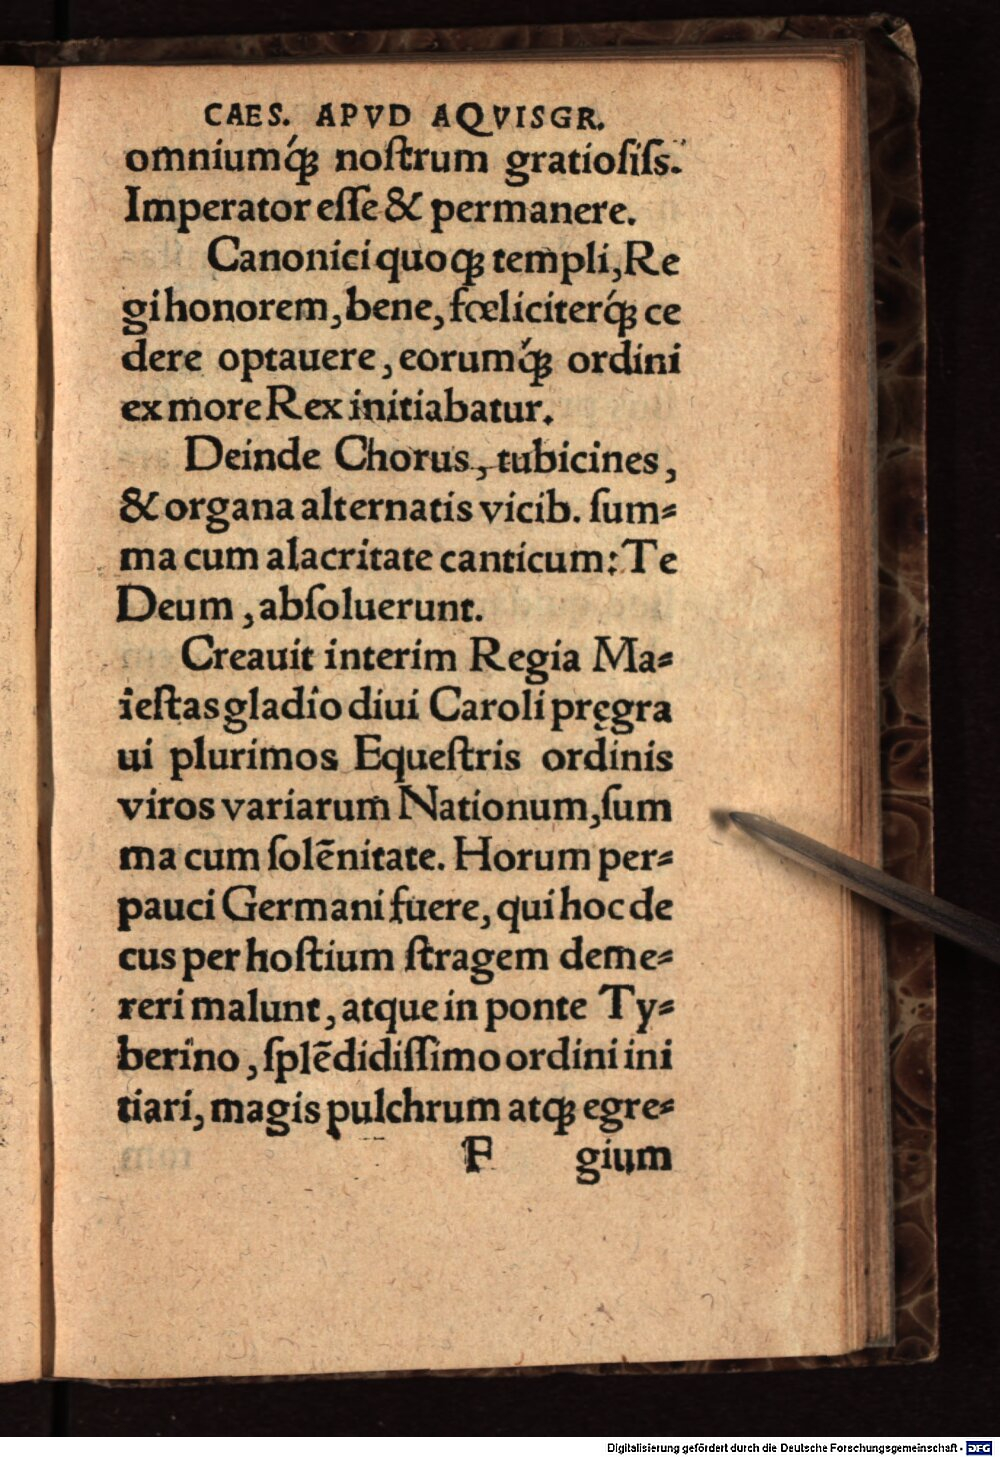 CAES. APVD AQVISGR.
omniumq́ꝫ noſtrum gratioſiſs.
Imperator eſſe & permanere.
Canonici quoqꝫ templi, Re
gi honorem, bene, fœliciterq́ꝫ ce
dere optauere, eorumq́ꝫ ordini
ex more Rex initiabatur.
Deinde Chorus, tubicines,
& organa alternatis vicib. ſum⸗
ma cum alacritate canticum: Te
Deum, abſoluerunt.
Creauit interim Regia Ma⸗
ieſtas gladio diui Caroli pręgra
ui plurimos Equeſtris ordinis
viros variarum Nationum, ſum
ma cum ſolēnitate. Horum per⸗
pauci Germani fuere, qui hoc de
cus per hoſtium ſtragem deme⸗
reri malunt, atque in ponte Ty⸗
berino, ſplēdidiſſimo ordini ini
tiari, magis pulchrum atqꝫ egre⸗
F gium
Digitalisierung gefördert durch die Deutsche Forschungsgemeinschaft - DFG